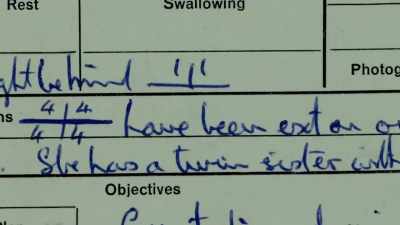 Rest Swallowing
ght behind 1/1
Photog
ns 4/4 4/4 have been ext on o
. She has a twin sister with
Objectives